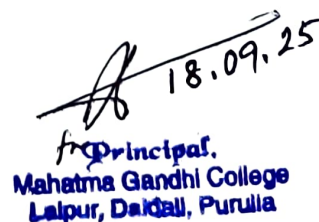 18.09.25
for Principal,
Mahatma Gandhi College
Lalpur, Daldali, Purulia